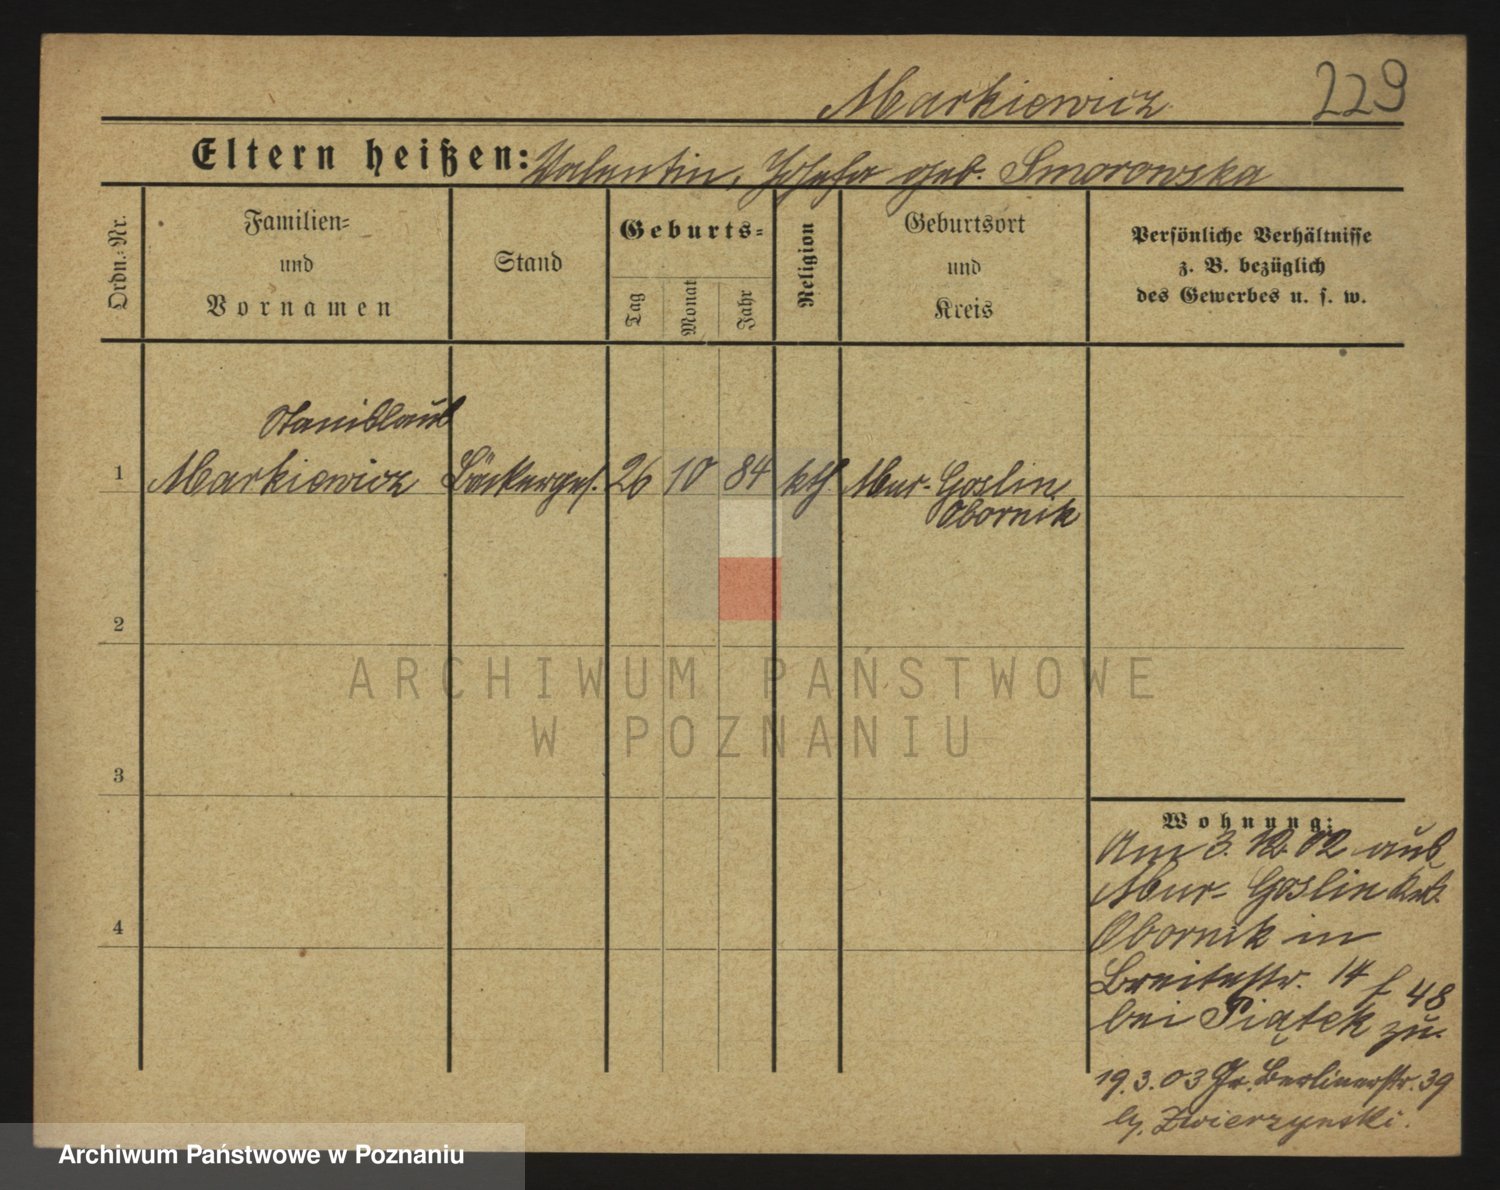 Markiewicz
229
Eltern heißen: Valentin, Josefa geb. Smorowska
Ordn.-Nr.
Familien-
und
Vornamen
Stand
Geburts-
Tag
Monat
Jahr
Religion
Geburtsort
und
Kreis
Persönliche Verhältnisse
z. B. bezüglich
des Gewerbes u. s. w.
Stanislaus
1 Markiewicz Bäckerges. 26 10 84 kth Mur-Goslin
Obornik
2
3
4
ARCHIWUM PAŃSTWOWE
W POZNANIU
Wohnung:
Am 3.12.02 aus
Mur-Goslin
Obornik in
Breitestr. 14 f 48
bei Piątek zu.
19.3.03 Gr. Berlinerstr. 39
Zwierzynski.
Archiwum Państwowe w Poznaniu